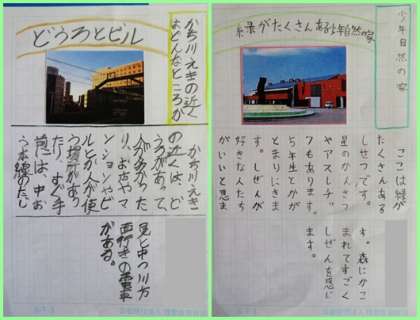 かち川えきの近く
はどんなところか
どうろとビル
かち川えき
の近くは、ど
うろがあって、
人が多かった
り、お店やマ
ンションやビ
ルとか人が使
う場所があり
たり、すぐ手
前には、中お
う本線のたじ
見と中つ川方
面行きの電車
がある。
少年自然の家
緑がたくさんある少年自然の家
ここは緑が
たくさんある
しせつです。
星のかんさつ
やアスレチッ
クもあります。
5年生とかが
とまりにきま
す。しぜんが
好きな人たち
がいいと思ま
す。森にかこ
まれてすごく
しぜんを感じ
ます。